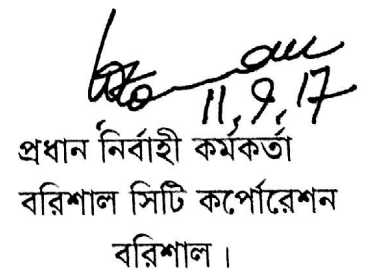 11.9.17
প্রধান নির্বাহী কর্মকর্তা
বরিশাল সিটি কর্পোরেশন
বরিশাল।